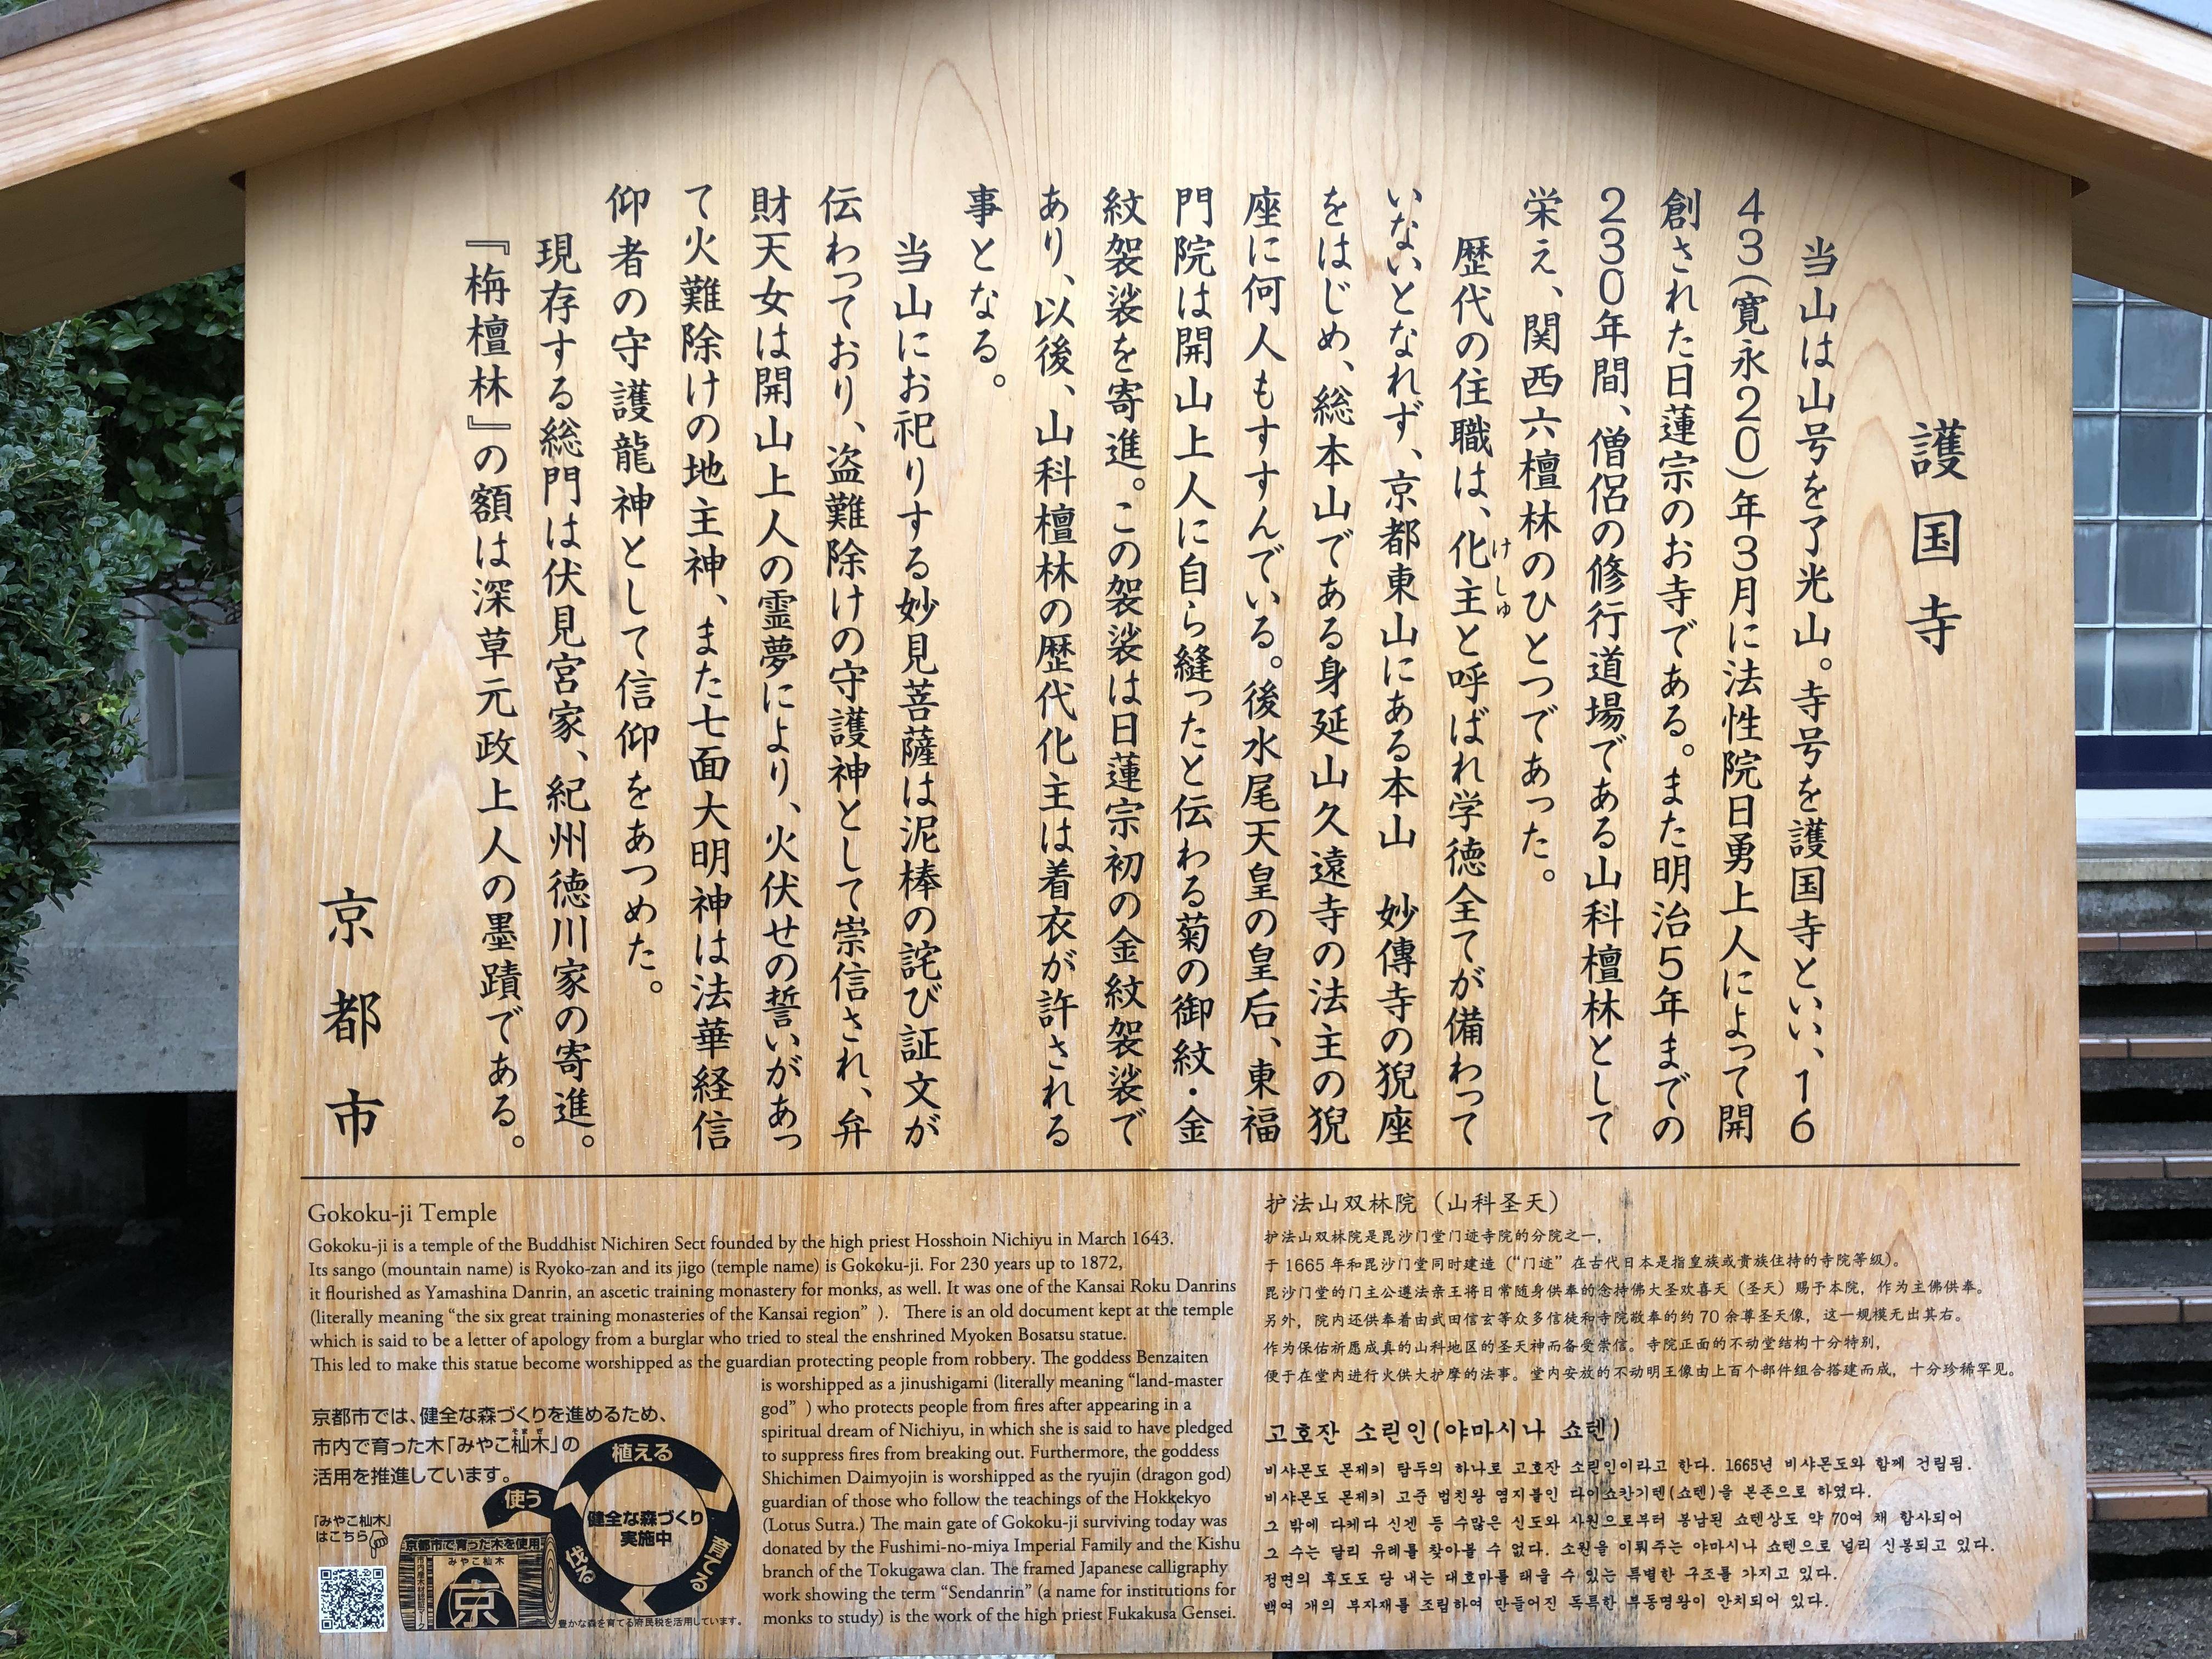 護国寺
当山は山号を了光山。寺号を護国寺といい、16
43(寛永20)年3月に法性院日勇上人によって開
創された日蓮宗のお寺である。また明治5年までの
230年間、僧侶の修行道場である山科檀林として
栄え、関西六檀林のひとつであった。
歴代の住職は、化主と呼ばれ学徳全てが備わって
けしゅ
いないとなれず、京都東山にある本山 妙傳寺の猊座
をはじめ、総本山である身延山久遠寺の法主の猊
座に何人もすすんでいる。後水尾天皇の皇后、東福
門院は開山上人に自ら縫ったと伝わる菊の御紋・金
紋袈裟を寄進。この袈裟は日蓮宗初の金紋袈裟で
あり、以後、山科檀林の歴代化主は着衣が許される
事となる。
当山にお祀りする妙見菩薩は泥棒の詫び証文が
伝わっており、盗難除けの守護神として崇信され、弁
財天女は開山上人の霊夢により、火伏せの誓いがあっ
て火難除けの地主神、また七面大明神は法華経信
仰者の守護龍神として信仰をあつめた。
現存する総門は伏見宮家、紀州徳川家の寄進。
『栴檀林』の額は深草元政上人の墨蹟である。
京都市
Gokoku-ji Temple
Gokoku-ji is a temple of the Buddhist Nichiren Sect founded by the high priest Hosshoin Nichiyu in March 1643.
Its sango (mountain name) is Ryoko-zan and its jigo (temple name) is Gokoku-ji. For 230 years up to 1872,
it flourished as Yamashina Danrin, an ascetic training monastery for monks, as well. It was one of the Kansai Roku Danrins
(literally meaning “the six great training monasteries of the Kansai region” ). There is an old document kept at the temple
which is said to be a letter of apology from a burglar who tried to steal the enshrined Myoken Bosatsu statue.
This led to make this statue become worshipped as the guardian protecting people from robbery. The goddess Benzaiten
is worshipped as a jinushigami (literally meaning “land-master
god” ) who protects people from fires after appearing in a
spiritual dream of Nichiyu, in which she is said to have pledged
to suppress fires from breaking out. Furthermore, the goddess
Shichimen Daimyojin is worshipped as the ryujin (dragon god)
guardian of those who follow the teachings of the Hokkekyo
(Lotus Sutra.) The main gate of Gokoku-ji surviving today was
donated by the Fushimi-no-miya Imperial Family and the Kishu
branch of the Tokugawa clan. The framed Japanese calligraphy
work showing the term “Sendanrin” (a name for institutions for
monks to study) is the work of the high priest Fukakusa Gensei.
京都市では、健全な森づくりを進めるため、
市内で育った木「みやこ杣木」の
そまぎ
活用を推進しています。
「みやこ杣木」
はこちら
植える
育てる
伐る
使う
健全な森づくり
実施中
京都市で育った木を使用
みやこ杣木
京
豊かな森を育てる府民税を活用しています。
护法山双林院（山科圣天）
护法山双林院是毘沙门堂门迹寺院的分院之一，
于 1665 年和毘沙门堂同时建造（“门迹” 在古代日本是指皇族或贵族住持的寺院等级）。
毘沙门堂的门主公遵法亲王将日常随身供奉的念持佛大圣欢喜天（圣天）赐予本院，作为主佛供奉。
另外，院内还供奉着由武田信玄等众多信徒和寺院敬奉的约 70 余尊圣天像，这一规模无出其右。
作为保佑祈愿成真的山科地区的圣天神而备受崇信。寺院正面的不动堂结构十分特别，
便于在堂内进行火供大护摩的法事。堂内安放的不动明王像由上百个部件组合搭建而成，十分珍稀罕见。
고호잔 소린인(야마시나 쇼텐)
비샤몬도 몬제키 탑두의 하나로 고호잔 소린인이라고 한다. 1665년 비샤몬도와 함께 건립됨.
비샤몬도 몬제키 고준 법친왕 염지불인 다이쇼칸기텐(쇼텐)을 본존으로 하였다.
그 밖에 다케다 신겐 등 수많은 신도와 사원으로부터 봉납된 쇼텐상도 약 70여 채 합사되어
그 수는 달리 유례를 찾아볼 수 없다. 소원을 이뤄주는 야마시나 쇼텐으로 널리 신봉되고 있다.
정면의 후도도 당 내는 대호마를 태울 수 있는 특별한 구조를 가지고 있다.
백여 개의 부자재를 조립하여 만들어진 독특한 부동명왕이 안치되어 있다.